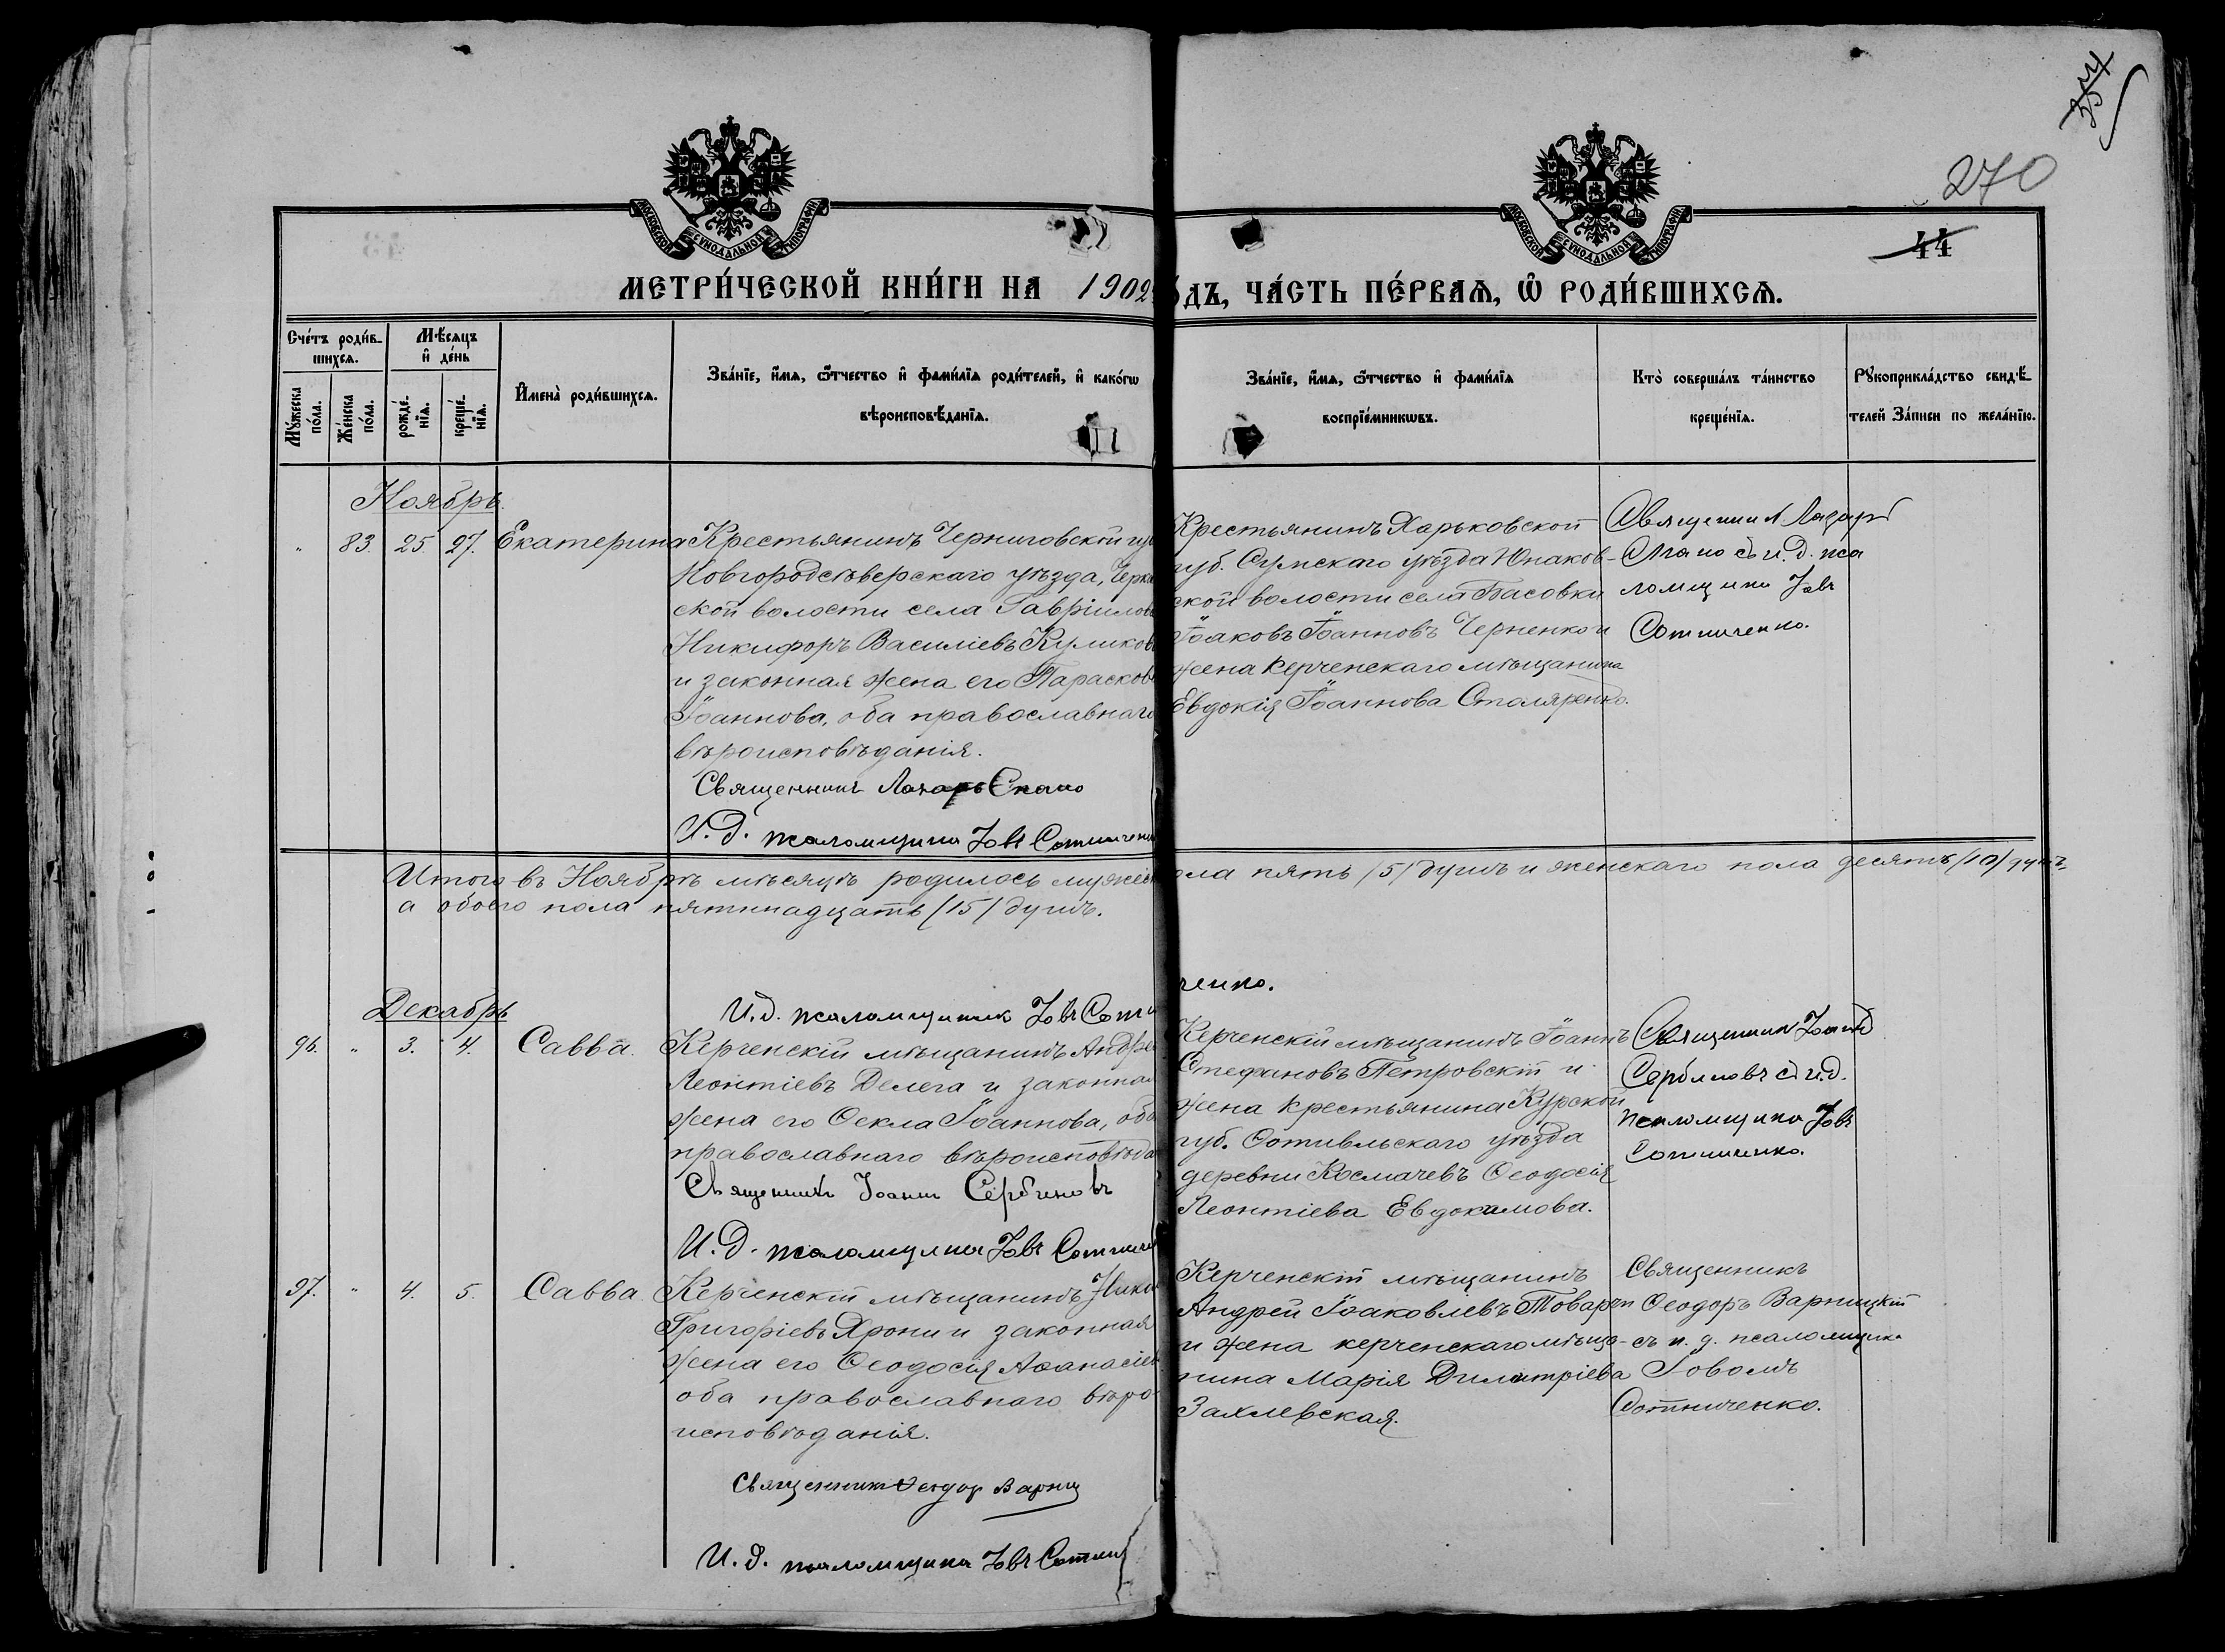 354
270
44
МОСКОВСКОЙ СѴНОДАЛЬНОЙ ТИПОГРАФІИ
МОСКОВСКОЙ СѴНОДАЛЬНОЙ ТИПОГРАФІИ
МЕТРИ́ЧЕСКОЙ КНИ́ГИ НА 1902
ДЪ, ЧА́СТЬ ПЕ́РВАѦ, Ѡ҆ РОДИ́ВШИХСѦ.
Сче́тъ роди́в-
шихсѧ.
Мꙋ́жеска по́ла.
Же́нска по́ла.
Мѣ́сѧцъ
и҆ де́нь
рожде́-
нїѧ.
креще́-
нїѧ.
И҆мена̀ роди́вшихсѧ.
Зва́нїе, и҆́мѧ, ѻ҆́тчество и҆ фами́лїѧ роди́телей, и҆ како́гѡ
вѣроисповѣ́данїѧ.
Зва́нїе, и҆́мѧ, ѻ҆́тчество и҆ фами́лїѧ
воспрїе́мникѡвъ.
Кто̀ соверша́лъ та́инство
креще́нїѧ.
Рꙋкоприкла́дство свидѣ́-
телей За́писи по жела́нїю.
Ноябрь.
" 83. 25. 27. Екатерина
Крестьянинъ Черниговской гу
Новгородсѣверскаго уѣзда,
ской волости села Гавріило
Никифоръ Василіевъ Куликов
и законная жена его Парасков
Іоаннова, оба православнаго
вѣроисповѣданія.
Священникъ Лазарь
И. д. псаломщика Іовъ Сотниченк
Крестьянинъ Харьковской
губ. Сумскаго уѣзда Юнаков-
ской волости села Басовки
Іоаковъ Іоанновъ Черненко и
жена керченскаго мѣщанина
Евдокія Іоаннова Столяренко.
Священникъ Лазарь
съ и. д. пса
ломщика Іовъ
Сотниченко.
Итого въ Ноябрѣ мѣсяцѣ родилось мужеск
ола пять /5/ душъ и женскаго пола десять /10/ душъ,
а обоего пола пятнадцать /15/ душъ.
И. д. псаломщика Іовъ Сотни
ченко.
Декабрь
96. " 3. 4. Савва.
Керченскій мѣщанинъ Андре
Леонтіевъ Делега и законная
жена его Ѳекла Іоаннова, оба
православнаго вѣроисповѣда
Священникъ Іоаннъ Сербиновъ
И. д. псаломщика Іовъ Сотниче
Керченскій мѣщанинъ Іоаннъ
Стефановъ Петровскій и
жена крестьянина Курской
губ. уѣзда
деревни Космачевъ Ѳеодосія
Леонтіева Евдокимова.
Священникъ Іоаннъ
Сербиновъ съ и. д.
псаломщика Іовъ
Сотниченко.
97. " 4. 5. Савва
Керченскій мѣщанинъ Нико
Григоріевъ Хрони и законная
жена его Ѳеодосія Аѳанасіев
оба православнаго вѣро-
исповѣданія.
Священникъ Ѳеодоръ Варниц
И. д. псаломщика Іовъ Сотни
Керченскій мѣщанинъ
Андрей Іоаковлевъ
и жена керченскаго мѣща-
нина Марія Димитріева
Захлевская.
Священникъ
Ѳеодоръ Варницкій
съ и. д. псаломщика
Іовомъ
Сотниченко.